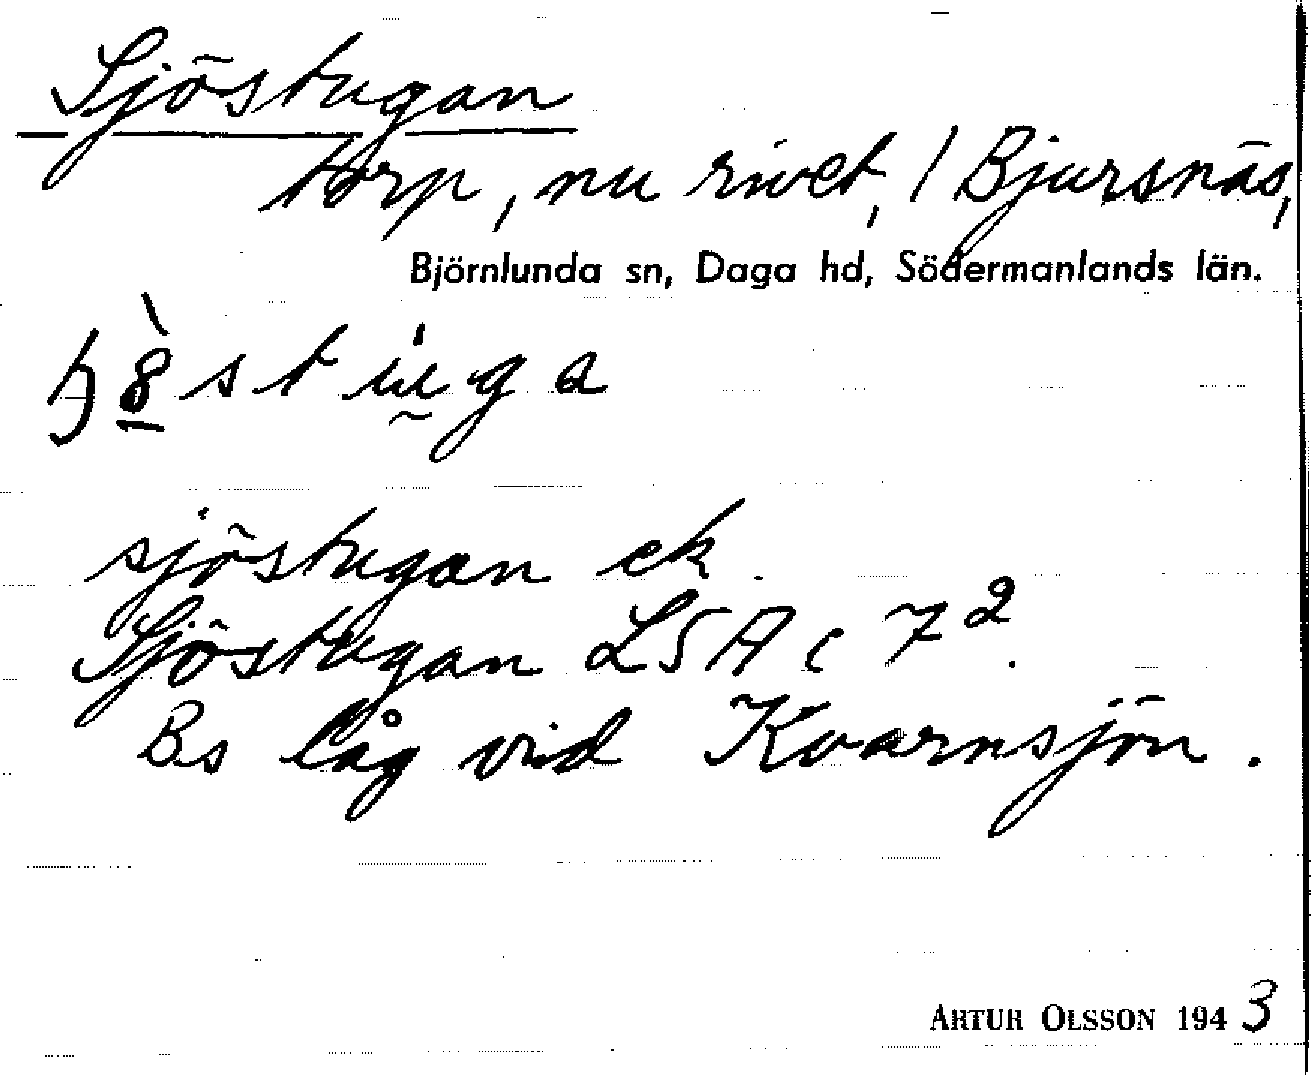 Sjöstugan
torp, nu rivet, / Bjursnäs,
Björnlunda sn, Daga hd, Södermanlands län.
sjöstugan ek.
Sjöstugan LSA c 7².
Bs låg vid Kvarnsjön.
ARTUR OLSSON 1943